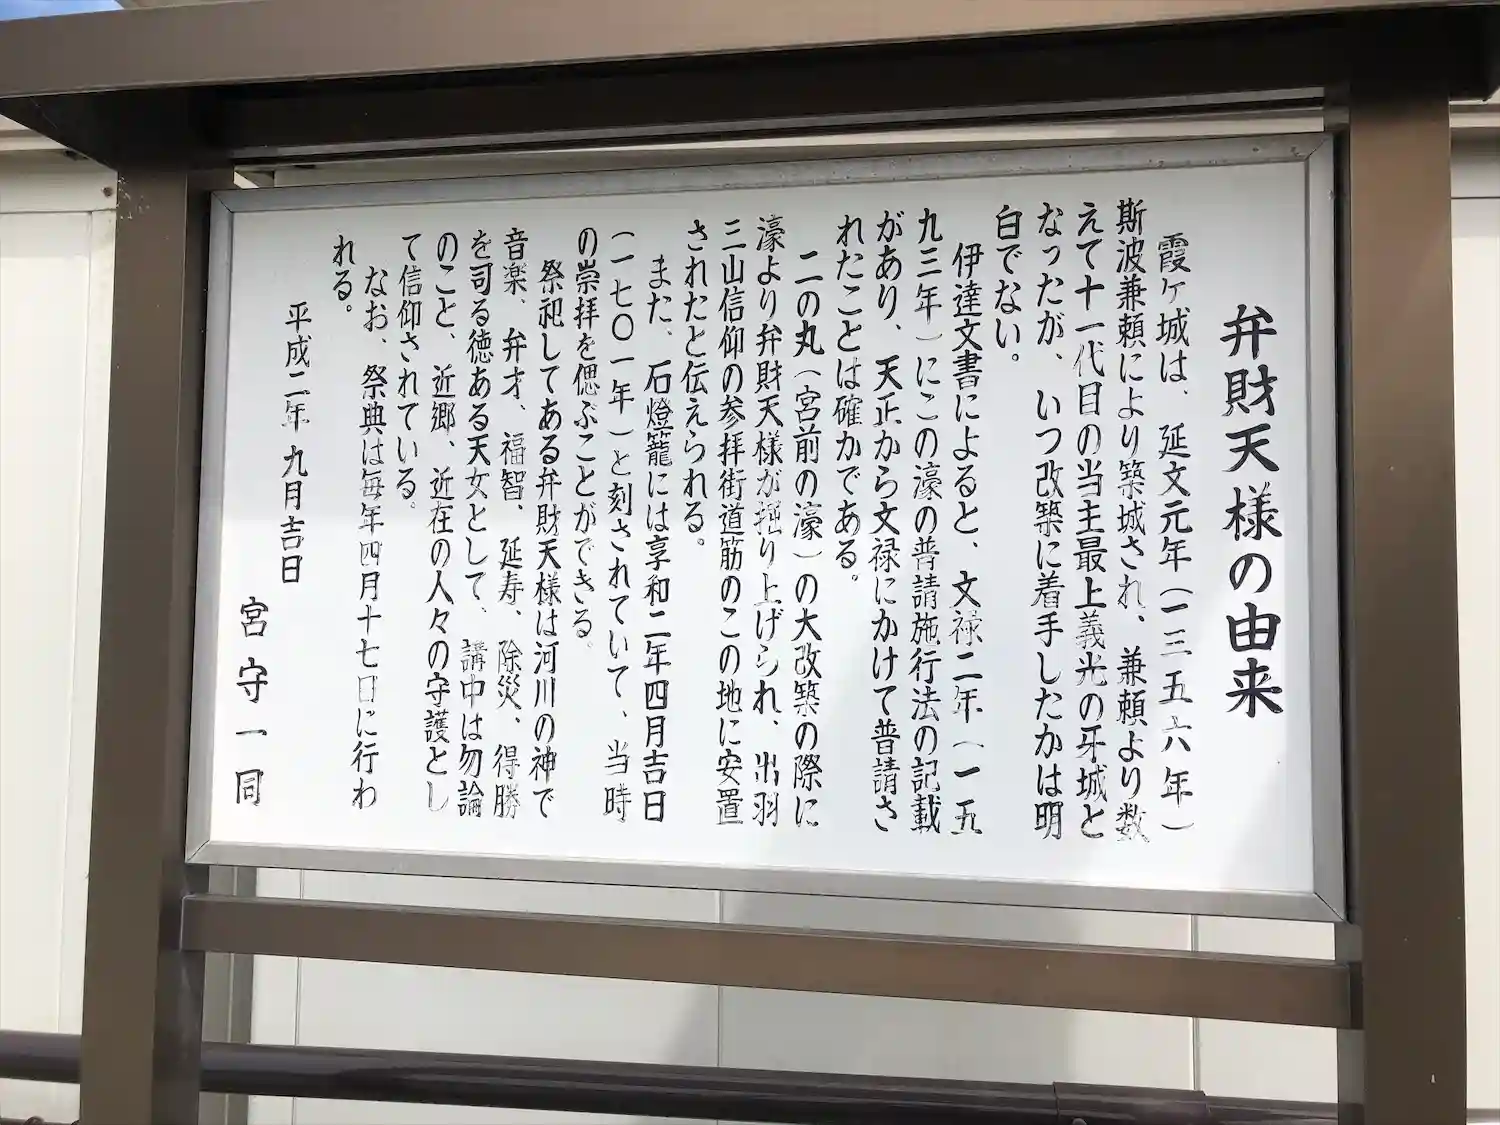 弁財天様の由来
霞ケ城は、延文元年(一三五六年)
斯波兼頼により築城され、兼頼より数
えて十一代目の当主最上義光の牙城と
なったが、いつ改築に着手したかは明
白でない。
伊達文書によると、文禄二年(一五
九三年)にこの濠の普請施行法の記載
があり、天正から文禄にかけて普請さ
れたことは確かである。
二の丸(宮前の濠)の大改築の際に
濠より弁財天様が掘り上げられ、出羽
三山信仰の参拝街道筋のこの地に安置
されたと伝えられる。
また、石燈籠には享和二年四月吉日
(一七〇一年)と刻されていて、当時
の崇拝を偲ぶことができる。
祭祀してある弁財天様は河川の神で
音楽、弁才、福智、延寿、除災、得勝
を司る徳ある天女として、講中は勿論
のこと、近郷、近在の人々の守護とし
て信仰されている。
なお、祭典は毎年四月十七日に行わ
れる。
平成二年九月吉日
宮守一同